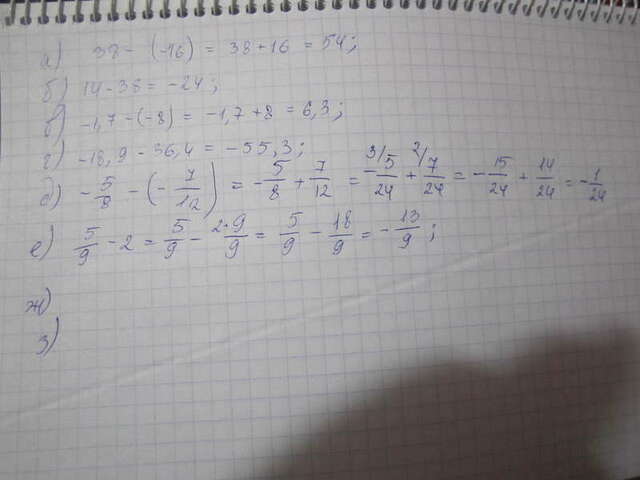 а) 38 - (-16) = 38 + 16 = 54;
б) 14 - 38 = -24;
в) -1,7 - (-8) = -1,7 + 8 = 6,3;
г) -18,9 - 36,4 = -55,3;
д) -5/8 - (-7/12) = -5/8 + 7/12 = 3/ -5/24 + 2/ 7/24 = -15/24 + 14/24 = -1/24
е) 5/9 - 2 = 5/9 - 2·9/9 = 5/9 - 18/9 = -13/9;
ж)
з)